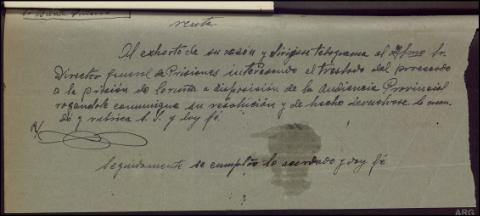 renta.
Al exhorto de su razón y diríjase telegrama al Iltmo Sr.
Director general de Prisiones interesando el traslado del procesado
a la prisión de Coruña a disposición de la Audiencia Provincial
rogandole comunique su resolución y de hecho devuelvase lo man-
dó y rubrica S.S. y doy fé
Seguidamente se cumplió lo acordado y doy fé
ARG